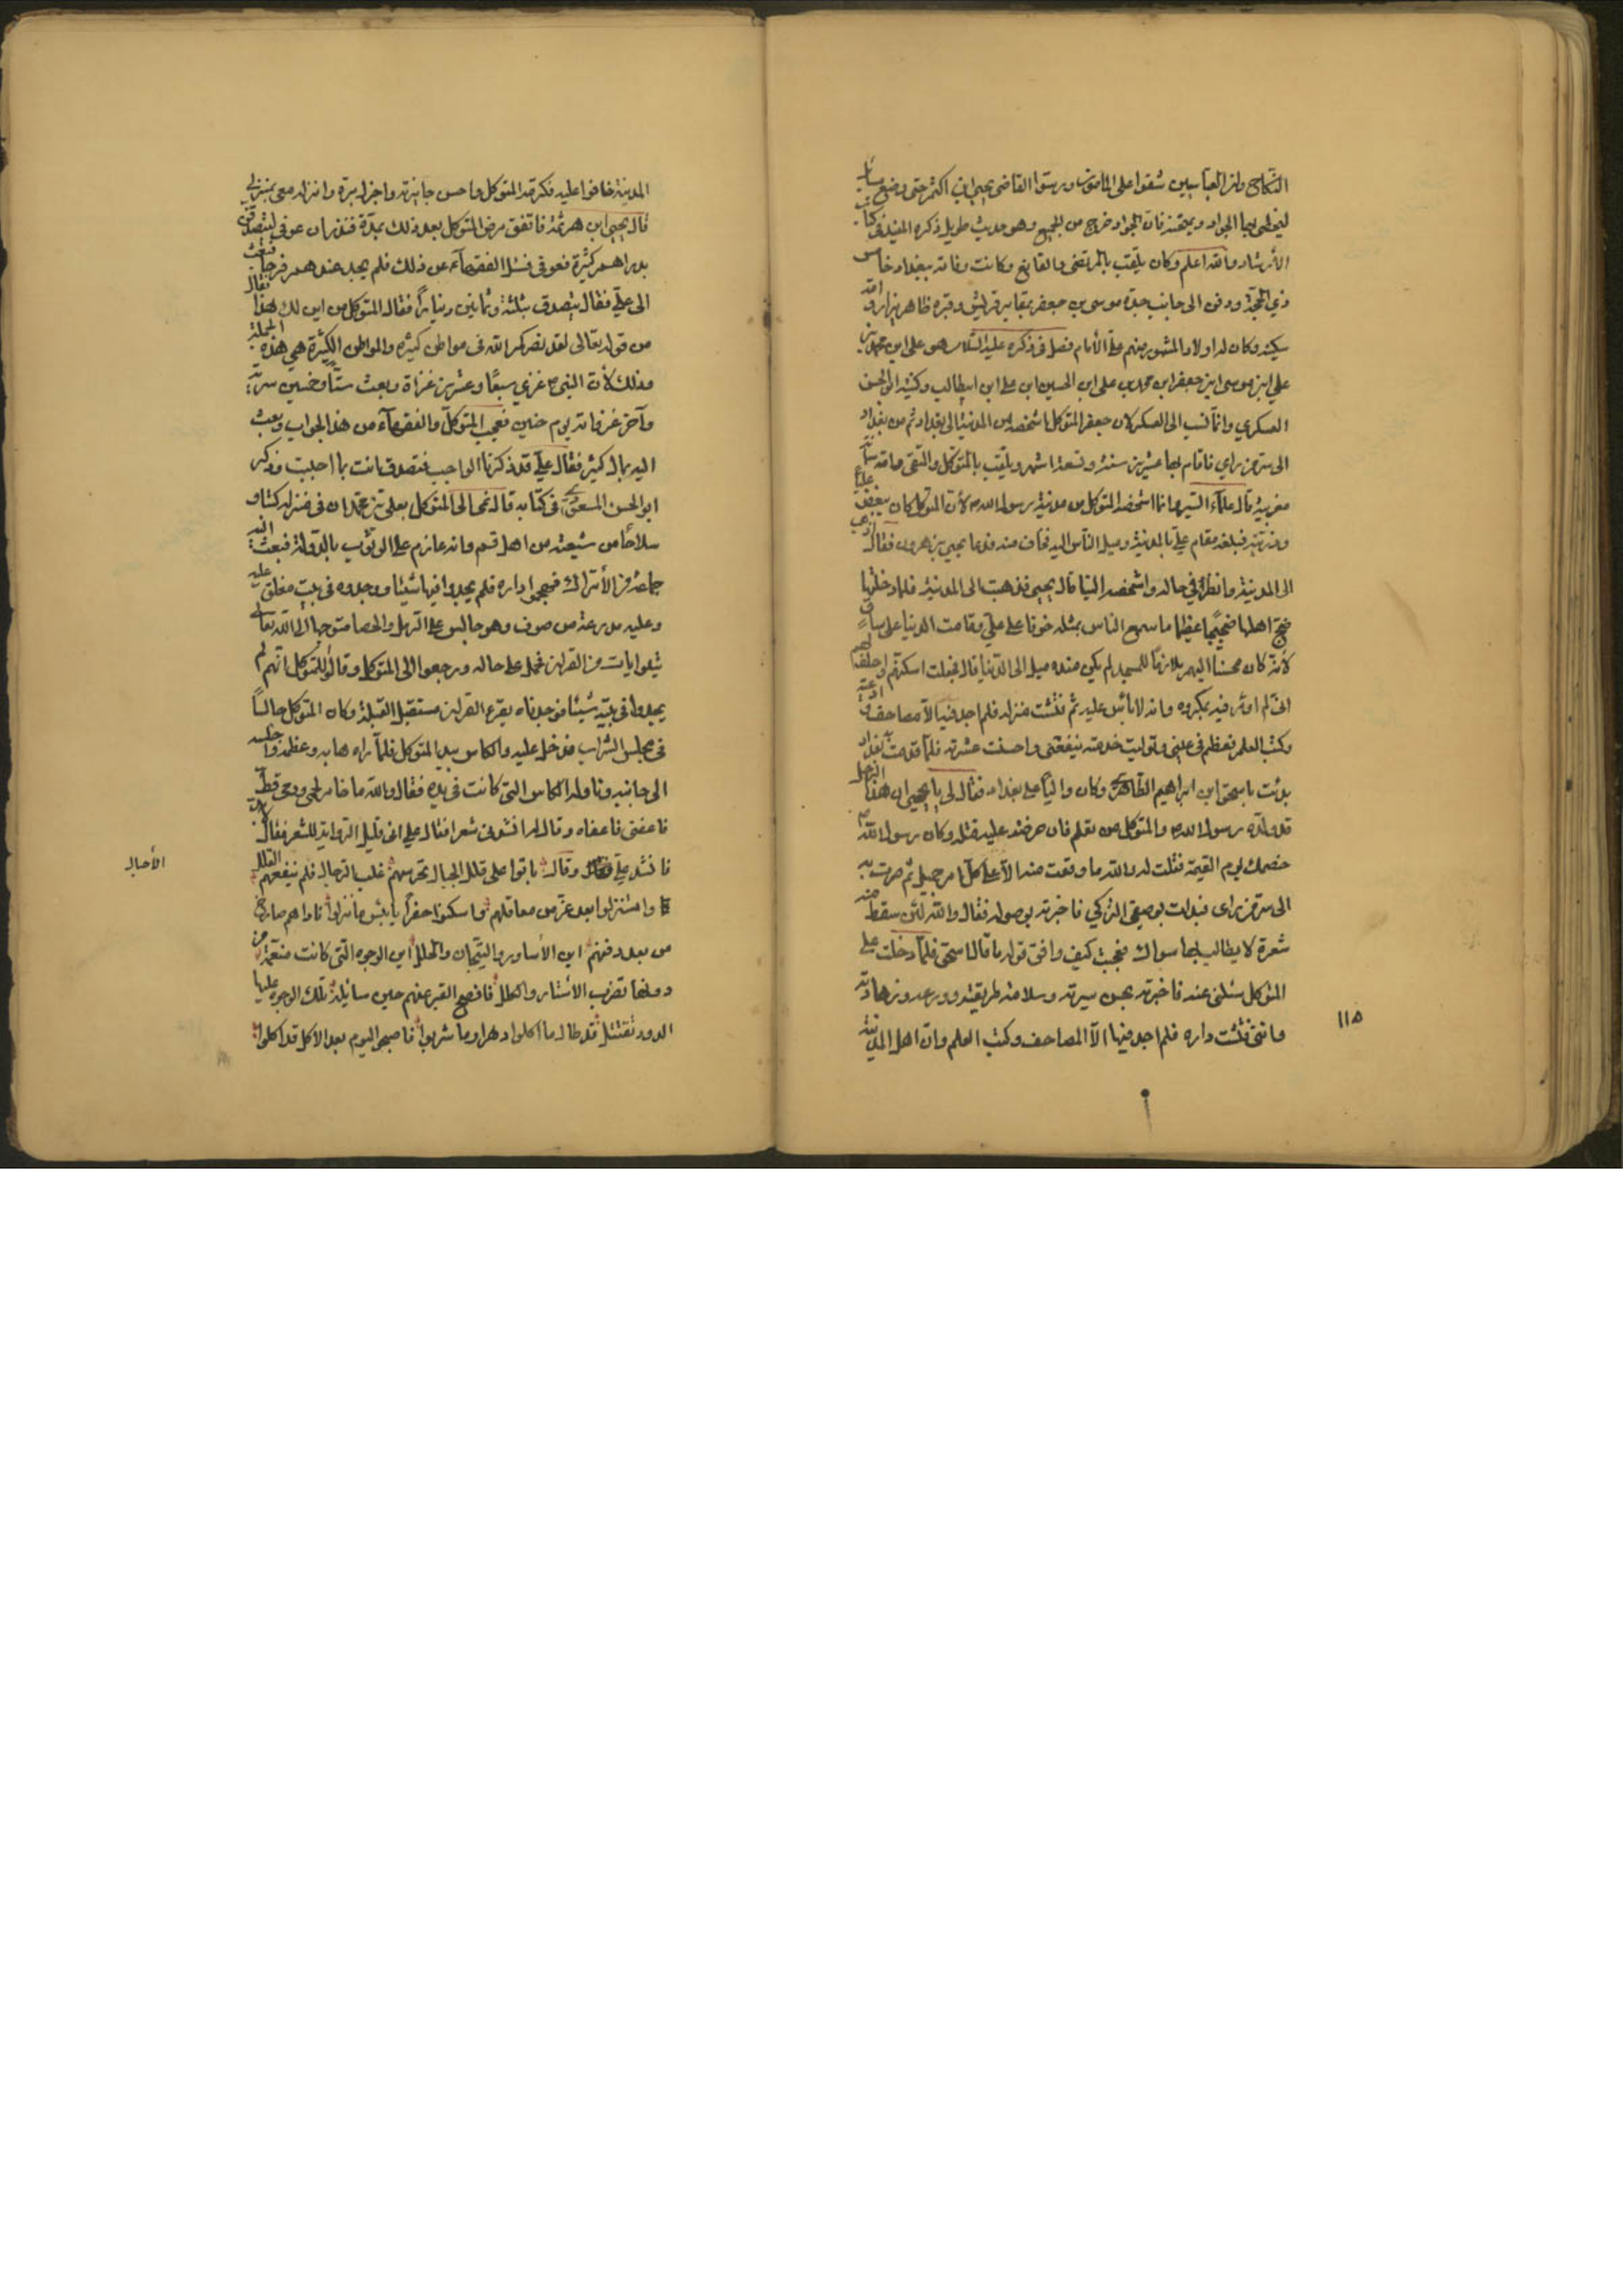 النكاح وان العباسيين شغفوا على المامون ورشوا القاضي يحيى ابن اكثم حتى وضع مسائل
ليخطى بها الجواد ويمتحنه فان الجواد خرج من الجميع وهو حديث طويل ذكره المفيد في كتاب
الأرشاد والله اعلم وكان يلقب بالمرتضى والقانع وكانت وفاته ببغداد خامس
ذي الحجة ودفن الى جانب جده موسى بن جعفر بمقابر قريش وقبره ظاهر يزار
وكان له اولاد المشهور منهم علي الأمام فصل في ذكره عليه السلام هو علي ابن محمد بن
علي ابن موسى ابن جعفر ابن محمد بن علي ابن الحسين ابن علي ابن ابيطالب وكنيته ابو الحسن
العسكري وانما نسب الى العسكر لان جعفر المتوكل اشخصه من المدينة الى بغداد ثم من بغداد
الى سر من راى فاقام بها عشرين سنة وتسعة اشهر ويلقب بالمتوكل والنقي وامه سمانة
مغربية قال علماء السير وانما اشخصه المتوكل من مدينة رسول الله ص لأن المتوكل كان يبغض عليا
وذريته فبلغه مقام علي بالمدينة وميل الناس اليه فخاف منه فدعا يحيى بن هرون فقال اذهب
الى المدينة وانظر في حاله واشخصه الينا قال يحيى فذهبت الى المدينة فلما دخلتها
ضج اهلها ضجيجا عظيما ما سمع الناس بمثله خوفا على علي وقامت الدنيا على ساق
لأنه كان محسنا اليهم ملازما للمسجد لم يكن عنده ميل الى الدنيا قال فجعلت اسكتهم واحلف لهم
اني لم اومر فيه بمكروه وانه لا بأس عليه ثم فتشت منزله فلم اجد فيه الا مصاحف وادعية
وكتب العلم فعظم في عيني وتوليت خدمته بنفسي واحسنت عشرته فلما قدمت به بغداد
بدئت باسحق ابن ابراهيم الطاهري وكان واليا على بغداد فقال لي يا يحيى ان هذا الرجل
قد ولده رسول الله ص والمتوكل من تعلم فان حرضته عليه قتله وكان رسول الله ص
خصمك يوم القيمة فقلت له والله ما وقعت منه الا على كل امر جميل ثم صرت به
الى سر من راى فبدات بوصيف التركي فاخبرته بوصوله فقال والله لئن سقط منه
شعرة لا يطالب بها سواك فعجبت كيف وافق قوله ما قال اسحق فلما دخلت على
المتوكل سئلني عنه فاخبرته بحسن سيرته وسلامة طريقته وورعه وزهادته
وانني فتشت داره فلم اجد فيها الا المصاحف وكتب العلم وان اهل المدينة
١١٥
المدينة خافوا عليه فكرمه المتوكل واحسن جايزته واجزل بره وانزله معي بمنزلي
قال يحيى ابن هرثمة فاتفق مرض المتوكل بعد ذلك بمدة فنذر ان عوفي ليتصدقن
بدراهم كثيرة فعوفي فسئل الفقهاء عن ذلك فلم يجد عندهم فرجا فبعث
الى علي فقال يتصدق بثلثة وثمانين دينارا فقال المتوكل من اين لك هذا فقال
من قوله تعالى لقد نصركم الله في مواطن كثيره والمواطن الكثيرة هي هذه الجملة
وذلك لأن النبي ص غزى سبعا وعشرين غزاة وبعث ستا وخمسين سرية
وآخر غزواته يوم حنين فعجب المتوكل والفقهاء من هذا الجواب وبعث
اليه بمال كثير فقال علي قد ذكرنا الواجب فتصدق انت بما احببت وذكر
ابو الحسن المسعودي في كتابه قال نمى الى المتوكل بعلي بن محمد ان في منزله كتبا و
سلاحا من شيعته من اهل قم وانه عازم على الوثوب بالدولة فبعث اليه
جماعة من الأتراك فهجموا داره فلم يجدوا فيها شيئا ووجدوه في بيت مغلق عليه
وعليه مدرعة من صوف وهو جالس على الرمل والحصا متوجها الى الله تعالى
يتلو ايات من القران فحمل على حاله ورجعوا الى المتوكل وقالوا للمتوكل انهم لم
يجدوا في بيته شيئا فوجدناه يقرء القران مستقبل القبلة وكان المتوكل جالسا
في مجلس الشراب فدخل عليه والكاس بيد المتوكل فلما راه هابه وعظمه واجلسه
الى جانبه وناوله الكاس التي كانت في يده فقال والله ما خامر لحمي ودمي قط
فاعفني فاعفاه وقال له انشدني شعرا فقال علي اني قليل الرواية للشعر فقال
فانشد علي وقال باتوا على قلل الجبال تحرسهم غلب الرجال فلم ينفعهم القلل
واستنزلوا بعد عز من معاقلهم واسكنوا حفرا يا بئس ما نزلوا ناداهم صارخ
من بعد دفنهم اين الأساور والتيجان والحلل اين الوجوه التي كانت منعمة من
دونها تضرب الاستار والكلل فافصح القبر عنهم حين سايله تلك الوجوه عليها
الدود تقتتل قد طال ما اكلوا دهرا وما شربوا فاصبحوا اليوم بعد الاكل قد اكلوا
الأجبال